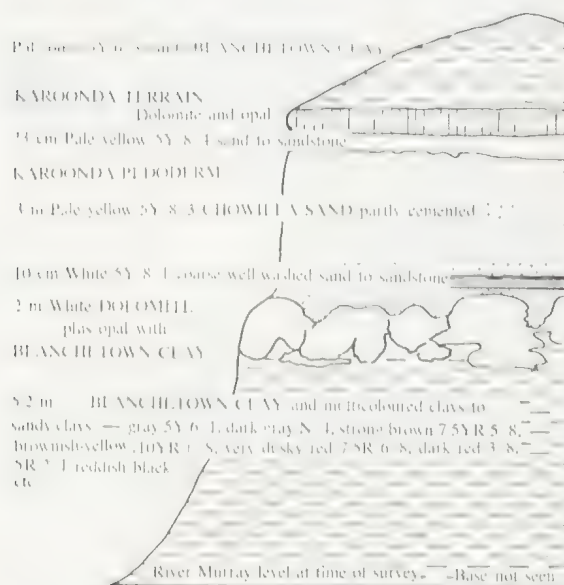 BLANCHETOWN CLAY
KAROONDA TERRAIN
Dolomite and opal
23 cm Pale yellow 5Y 8/4 sand to sandstone
KAROONDA PEDODERM
3 m Pale yellow 5Y 8/3 CHOWILLA SAND partly cemented
10 cm White 5Y 8/1 coarse well washed sand to sandstone
2 m White DOLOMITE
plus opal with
BLANCHETOWN CLAY
5.2 m BLANCHETOWN CLAY and multicoloured clays to
sandy clays — gray 5Y 6/1, dark gray N 4, strong brown 7.5YR 5/8,
brownish-yellow, 10YR 8, very dusky red 7.5R 6/8, dark red 3/8,
5R reddish black
etc
River Murray level at time of survey. Base not seen